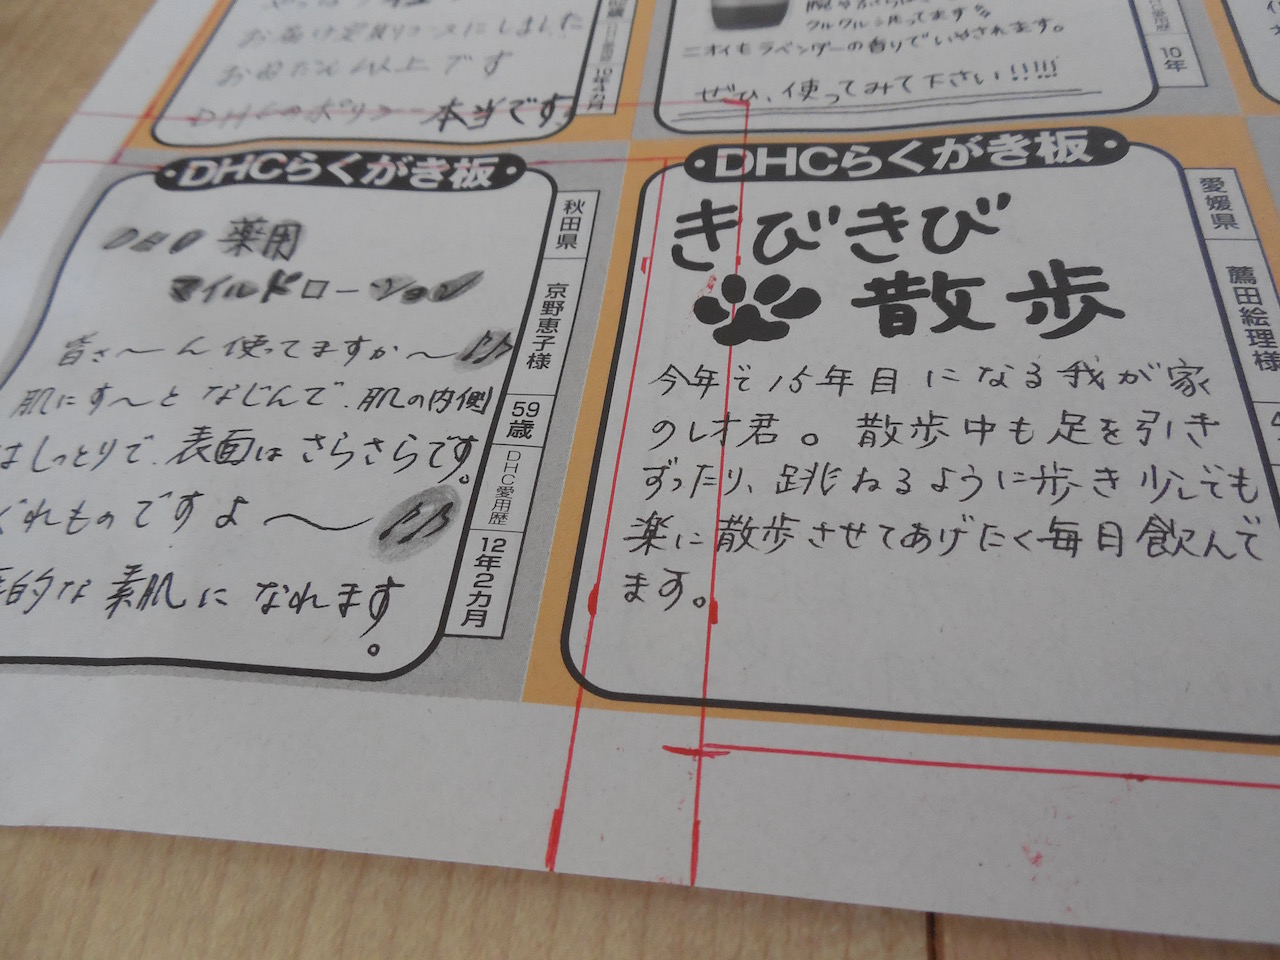 お届け定期コースにしました
お母さん以上です
本当です。
クルクル塗ってます
ニオイもラベンダーの香りでいやされます。
ぜひ、使ってみて下さい!!!!!
10年
・DHCらくがき板・
DHC 薬用
マイルドローション
皆さ〜ん使ってますか〜
肌にす〜となじんで、肌の内側
はしっとりで、表面はさらさらです。
ぐれものですよ〜
的な素肌になれます。
秋田県
京野恵子様
59歳
DHC愛用歴
12年2カ月
・DHCらくがき板・
きびきび
散歩
今年で15年目になる我が家
のレオ君。散歩中も足を引き
ずったり、跳ねるように歩き少しでも
楽に散歩させてあげたく毎月飲んで
ます。
愛媛県
薦田絵理様